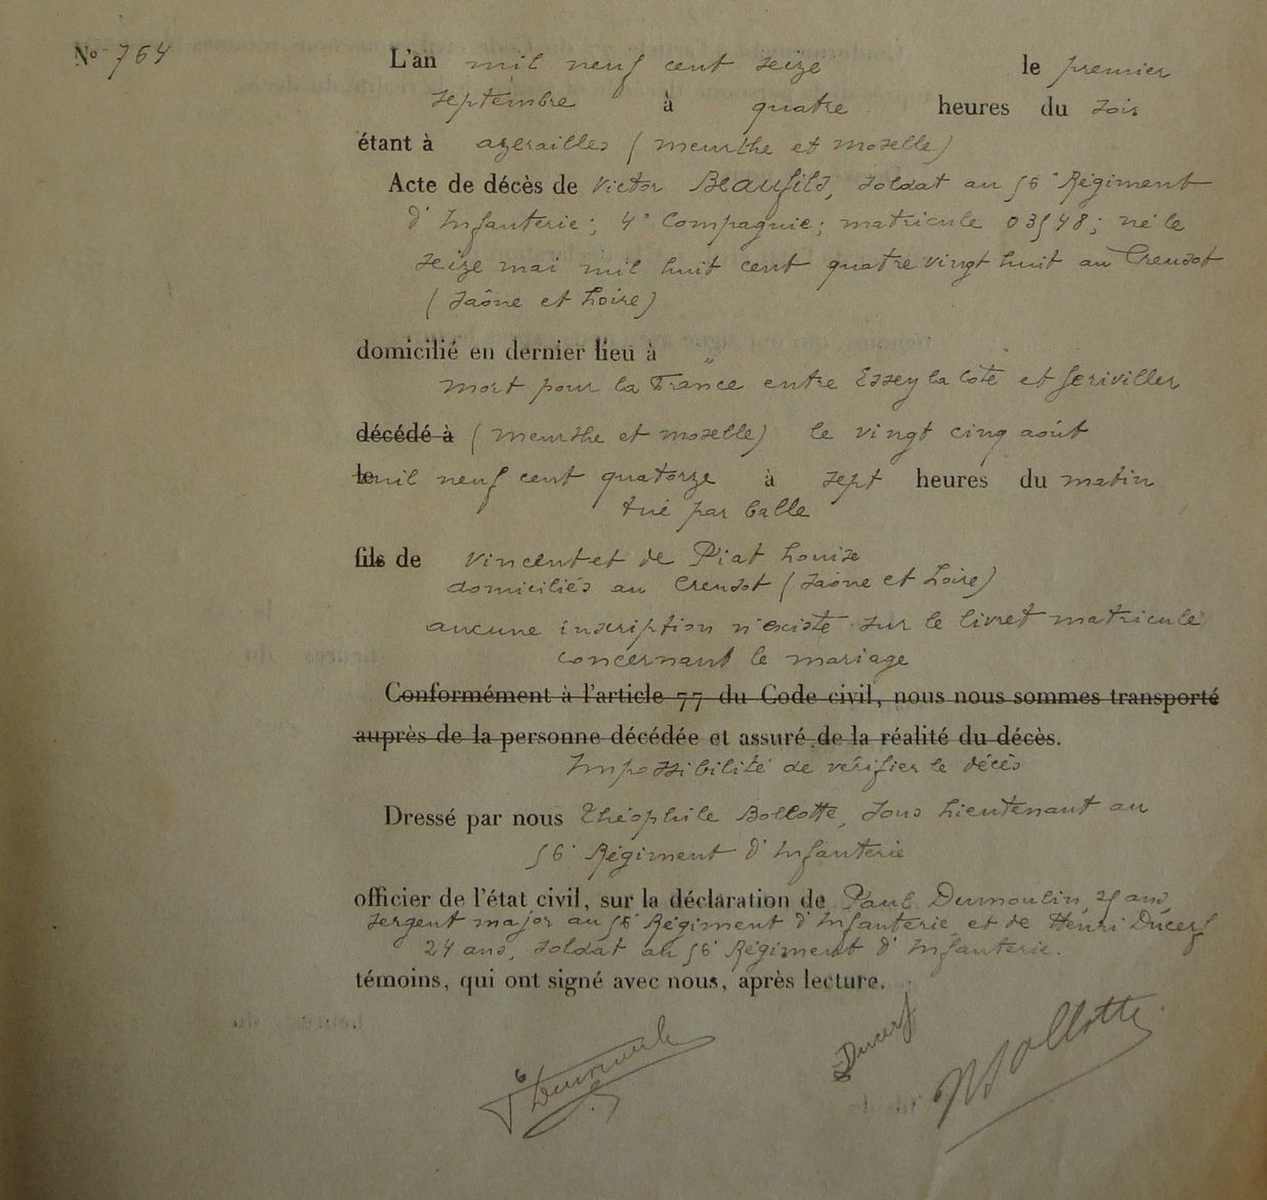 No 764
L'an mil neuf cent seize le premier
septembre à quatre heures du soir
étant à azerailles (meurthe et moselle)
Acte de décès de Victor Beaufils, soldat au 56e Régiment
d'Infanterie; 4e Compagnie; matricule 03548; né le
seize mai mil huit cent quatre vingt huit au Creusot
(Saône et Loire)
domicilié en dernier lieu à "
mort pour la France entre Essey la Côte et Seriviller
décédé à (Meurthe et moselle) le vingt cinq août
le mil neuf cent quatorze à sept heures du matin
tué par balle
fils de Vincent et de Piat Louise
domiciliés au Creusot (Saône et Loire)
aucune inscription n'existe sur le livret matricule
concernant le mariage
Conformément à l'article 77 du Code civil, nous nous sommes transporté
auprès de la personne décédée et assuré de la réalité du décès.
Impossibilité de vérifier le décès
Dressé par nous Théophile Bollotte, Sous Lieutenant au
56e Régiment d'Infanterie
officier de l'état civil, sur la déclaration de Paul Dumoulin, 25 ans,
sergent major au 56e Régiment d'Infanterie et de Henri Ducerf
24 ans, soldat au 56e Régiment d'Infanterie.
témoins, qui ont signé avec nous, après lecture.
Ducerf
Bollotte